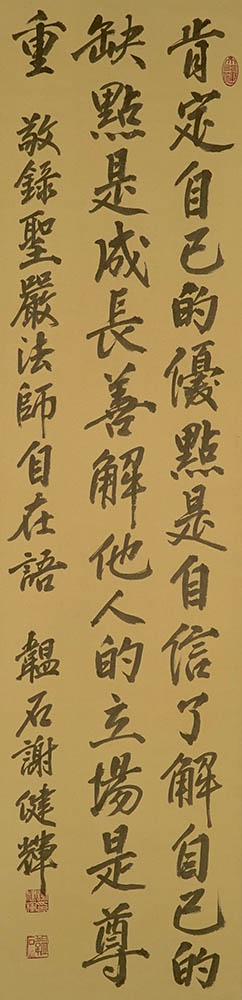 肯定自己的優點是自信了解自己的
缺點是成長善解他人的立場是尊
重
敬錄聖嚴法師自在語 韞石謝健輝